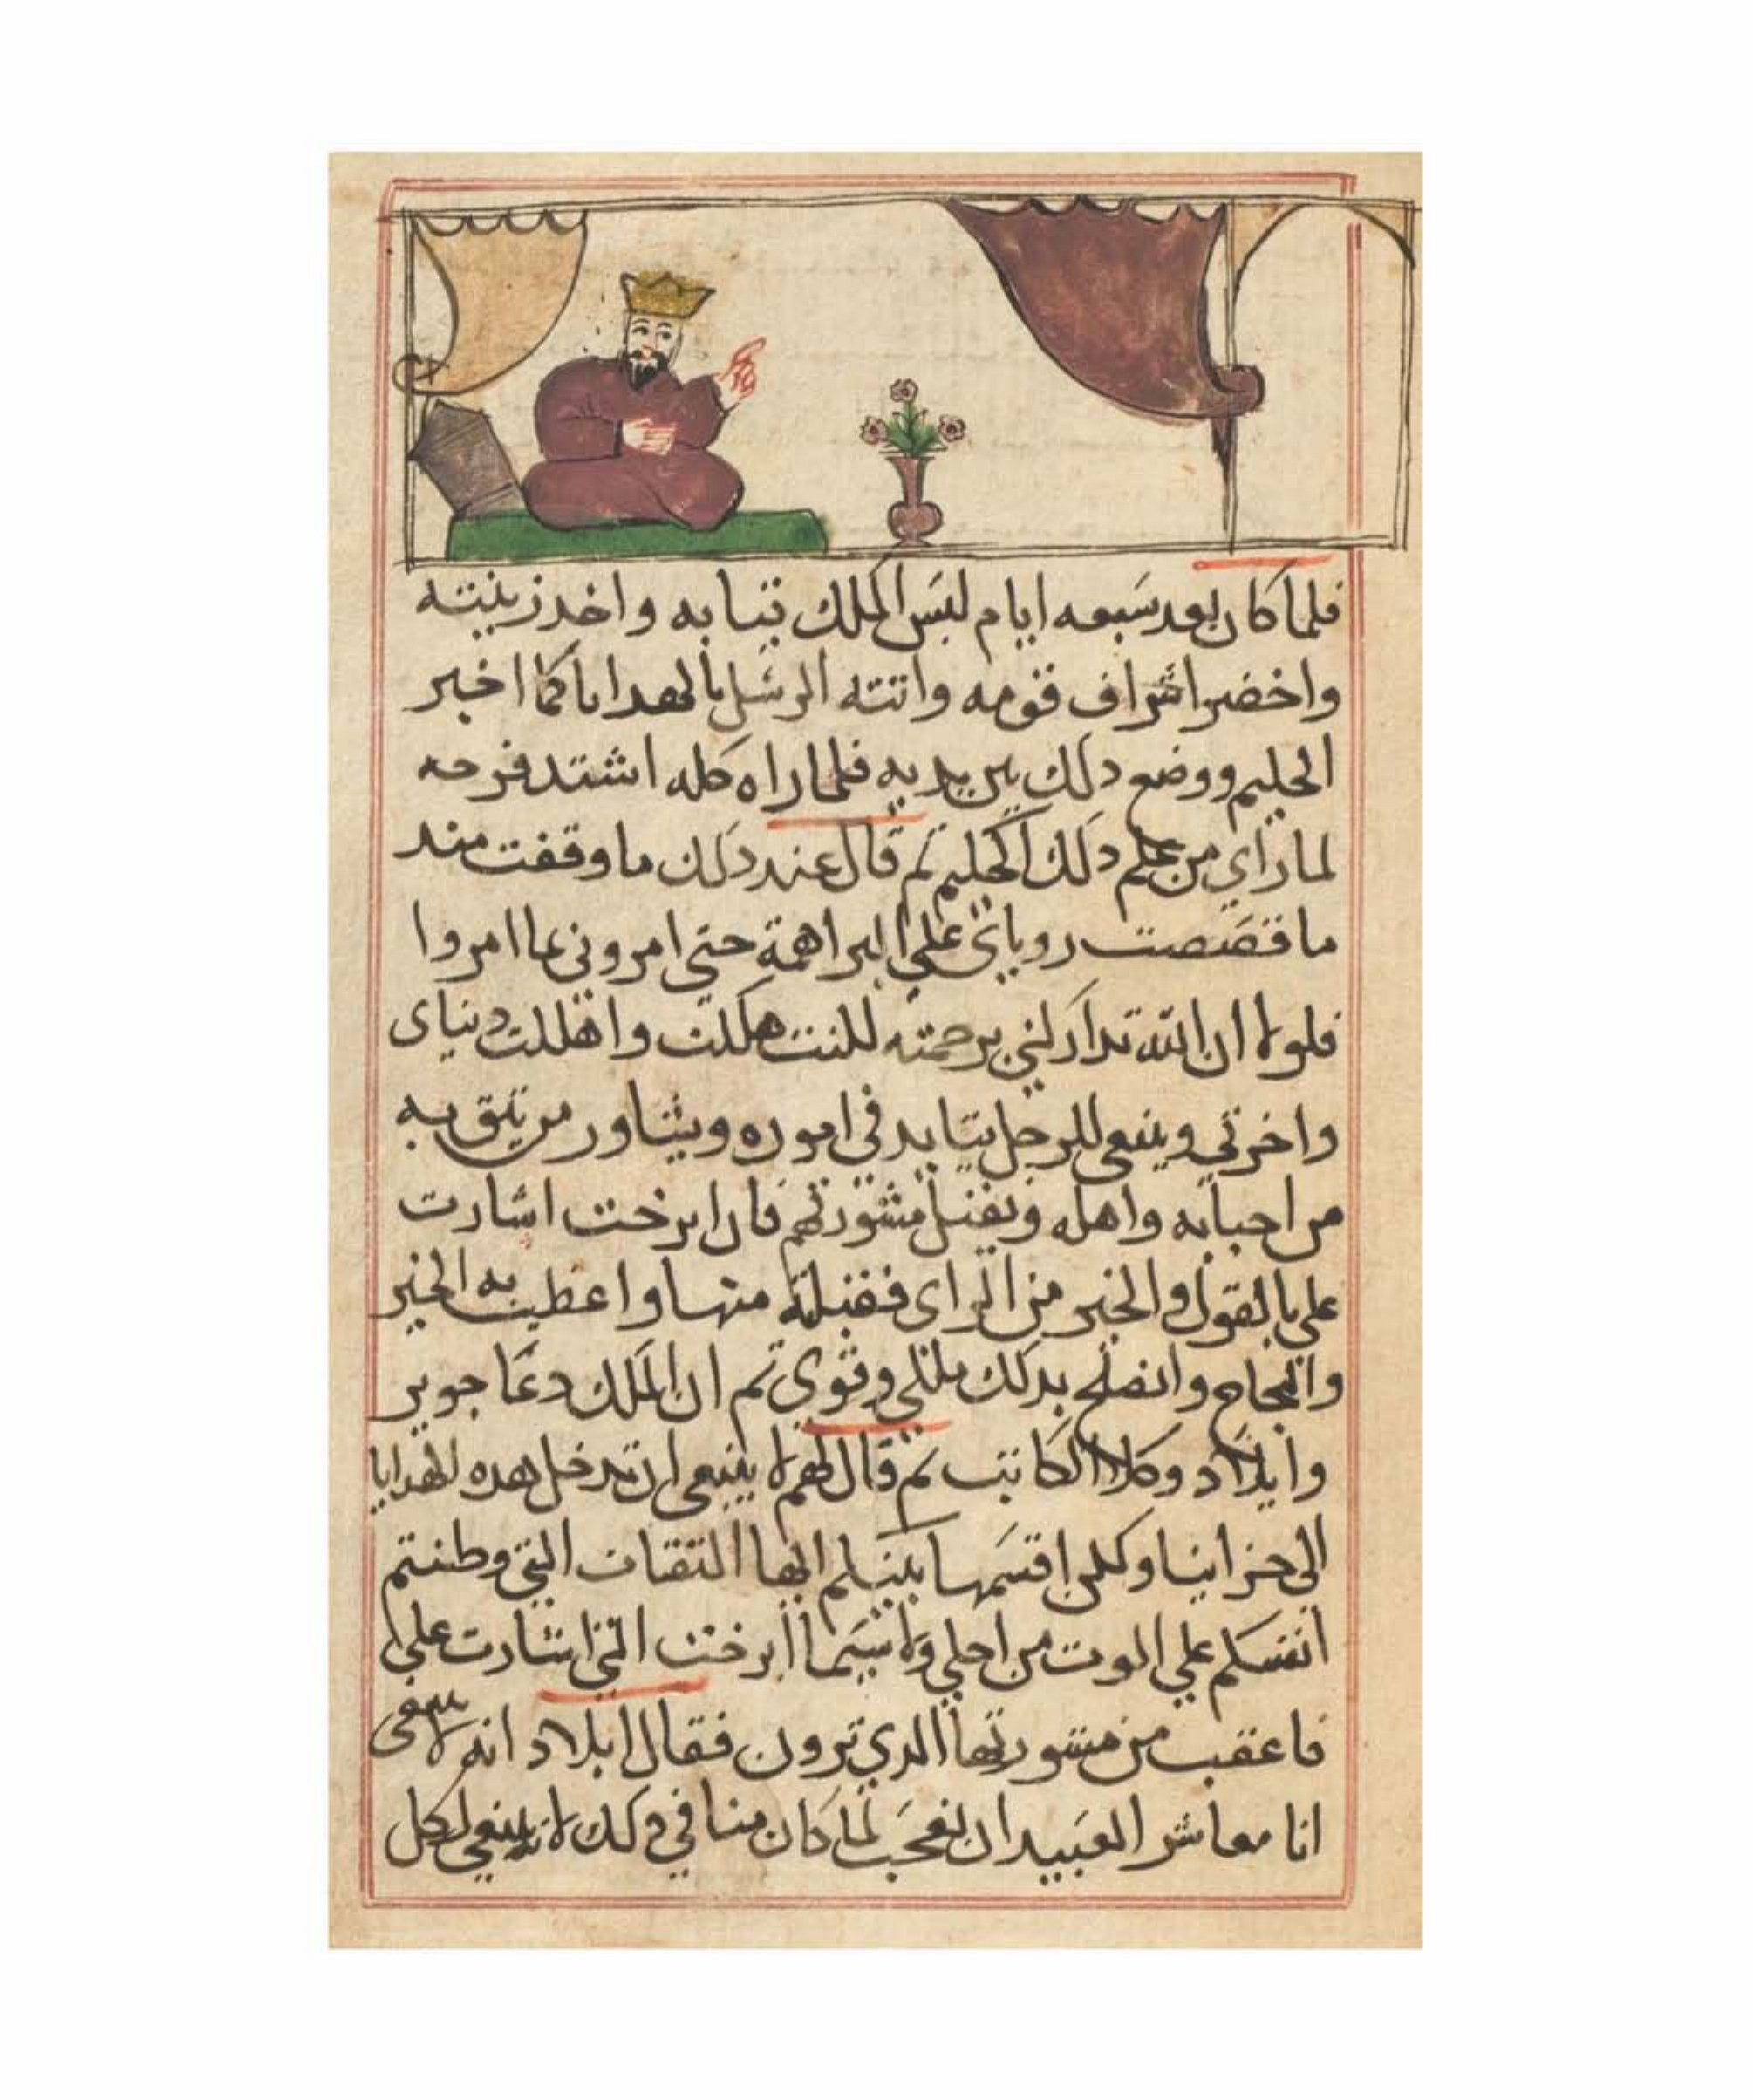 فلما كان بعد سبعه ايام لبس الملك تيابه واخد زينته
واخضر اشراف قومه واتته الرسل بالهدايا كما اخبر
الحليم ووضع دلك بين يديه فلما راه كله اشتد فرحه
لما راي من علم دلك الحليم تم قال عند دلك ما وقفت مند
ما قصصت روياي علي البراهمة حتي امروني بما امروا
فلولا ان الله تداركني برحمته لكنت هلكت واهلكت دنياي
واخرتي وينبعي للرجل يتايد في اموره ويشاور من يتق به
من احبابه واهله ويقبل مشورتهم فان ابرخت اشارت
علي بالقول والخير من الراي فقبلته منها واعطيت به الخير
والنجاح وانصلح بدلك ملكي وقوي تم ان الملك دعا جوير
وايلاد وكلالا الكاتب تم قال لهم لا ينبعي ان تدخل هده الهدايا
الي خزاينا ولكن اقسمها بينكم ايها التقات التي وطنتم
انفسكم علي الموت من اجلي ولا سيما ابرخت التي اشارت علي
فاعقب من مشورتها الدي ترون فقال ايلاد انه لا ينبغي
انا معاشر العبيد ان نعجب لما كان منا في دلك لانه ينبغي لكل